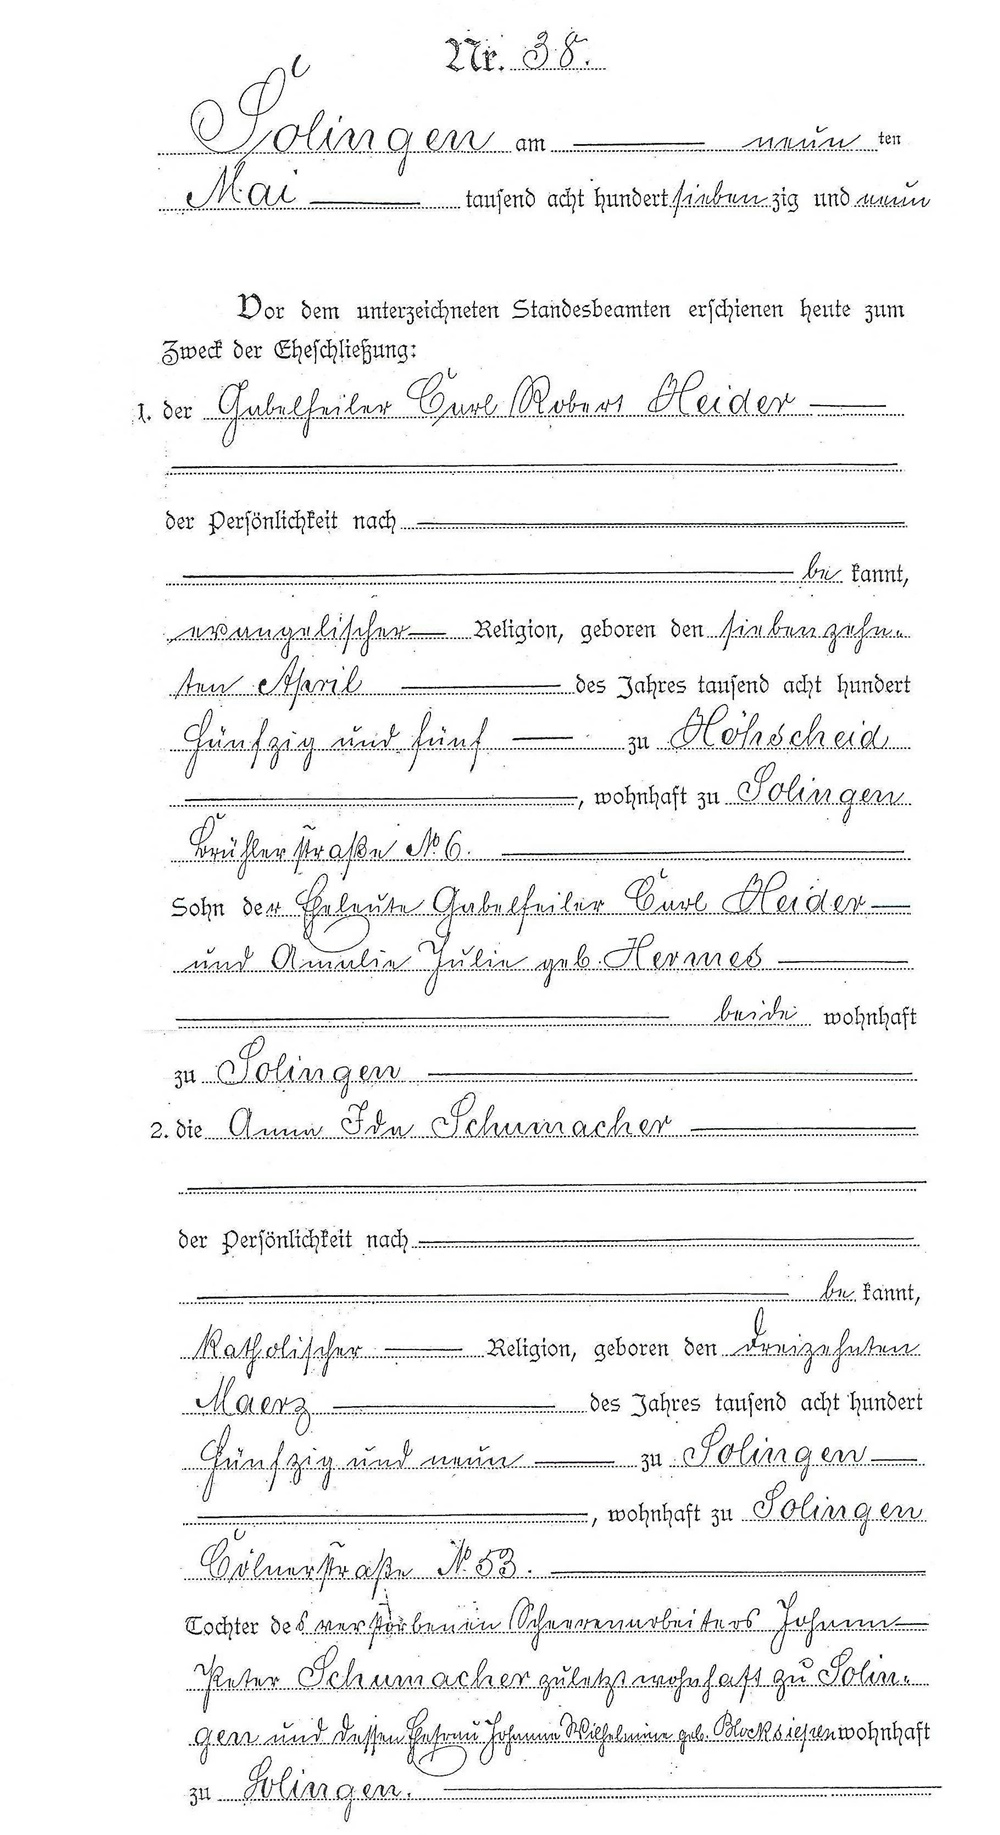 Nr. 38.
Solingen am neun ten
Mai tausend acht hundert sieben zig und neun
Vor dem unterzeichneten Standesbeamten erschienen heute zum
Zweck der Eheschließung:
1. der Gabelfeiler Carl Robert Heider
der Persönlichkeit nach
be kannt,
evangelischer Religion, geboren den siebenzehn-
ten April des Jahres tausend acht hundert
Fünfzig und fünf zu Höhscheid
, wohnhaft zu Solingen
Brühlerstraße No 6.
Sohn der Eheleute Gabelfeiler Carl Heider
und Amalie Julie geb. Hermes
beide wohnhaft
zu Solingen
2. die Anna Ida Schumacher
der Persönlichkeit nach
be kannt,
katholischer Religion, geboren den dreizehnten
Maerz des Jahres tausend acht hundert
Fünfzig und neun zu Solingen
, wohnhaft zu Solingen
Cölnerstraße No 53.
Tochter des verstorbenen Scheerenarbeiters Johann
Peter Schumacher zuletzt wohnhaft zu Solin-
gen und dessen Ehefrau Johanna Wilhelmine geb. Blocksiepen wohnhaft
zu Solingen.